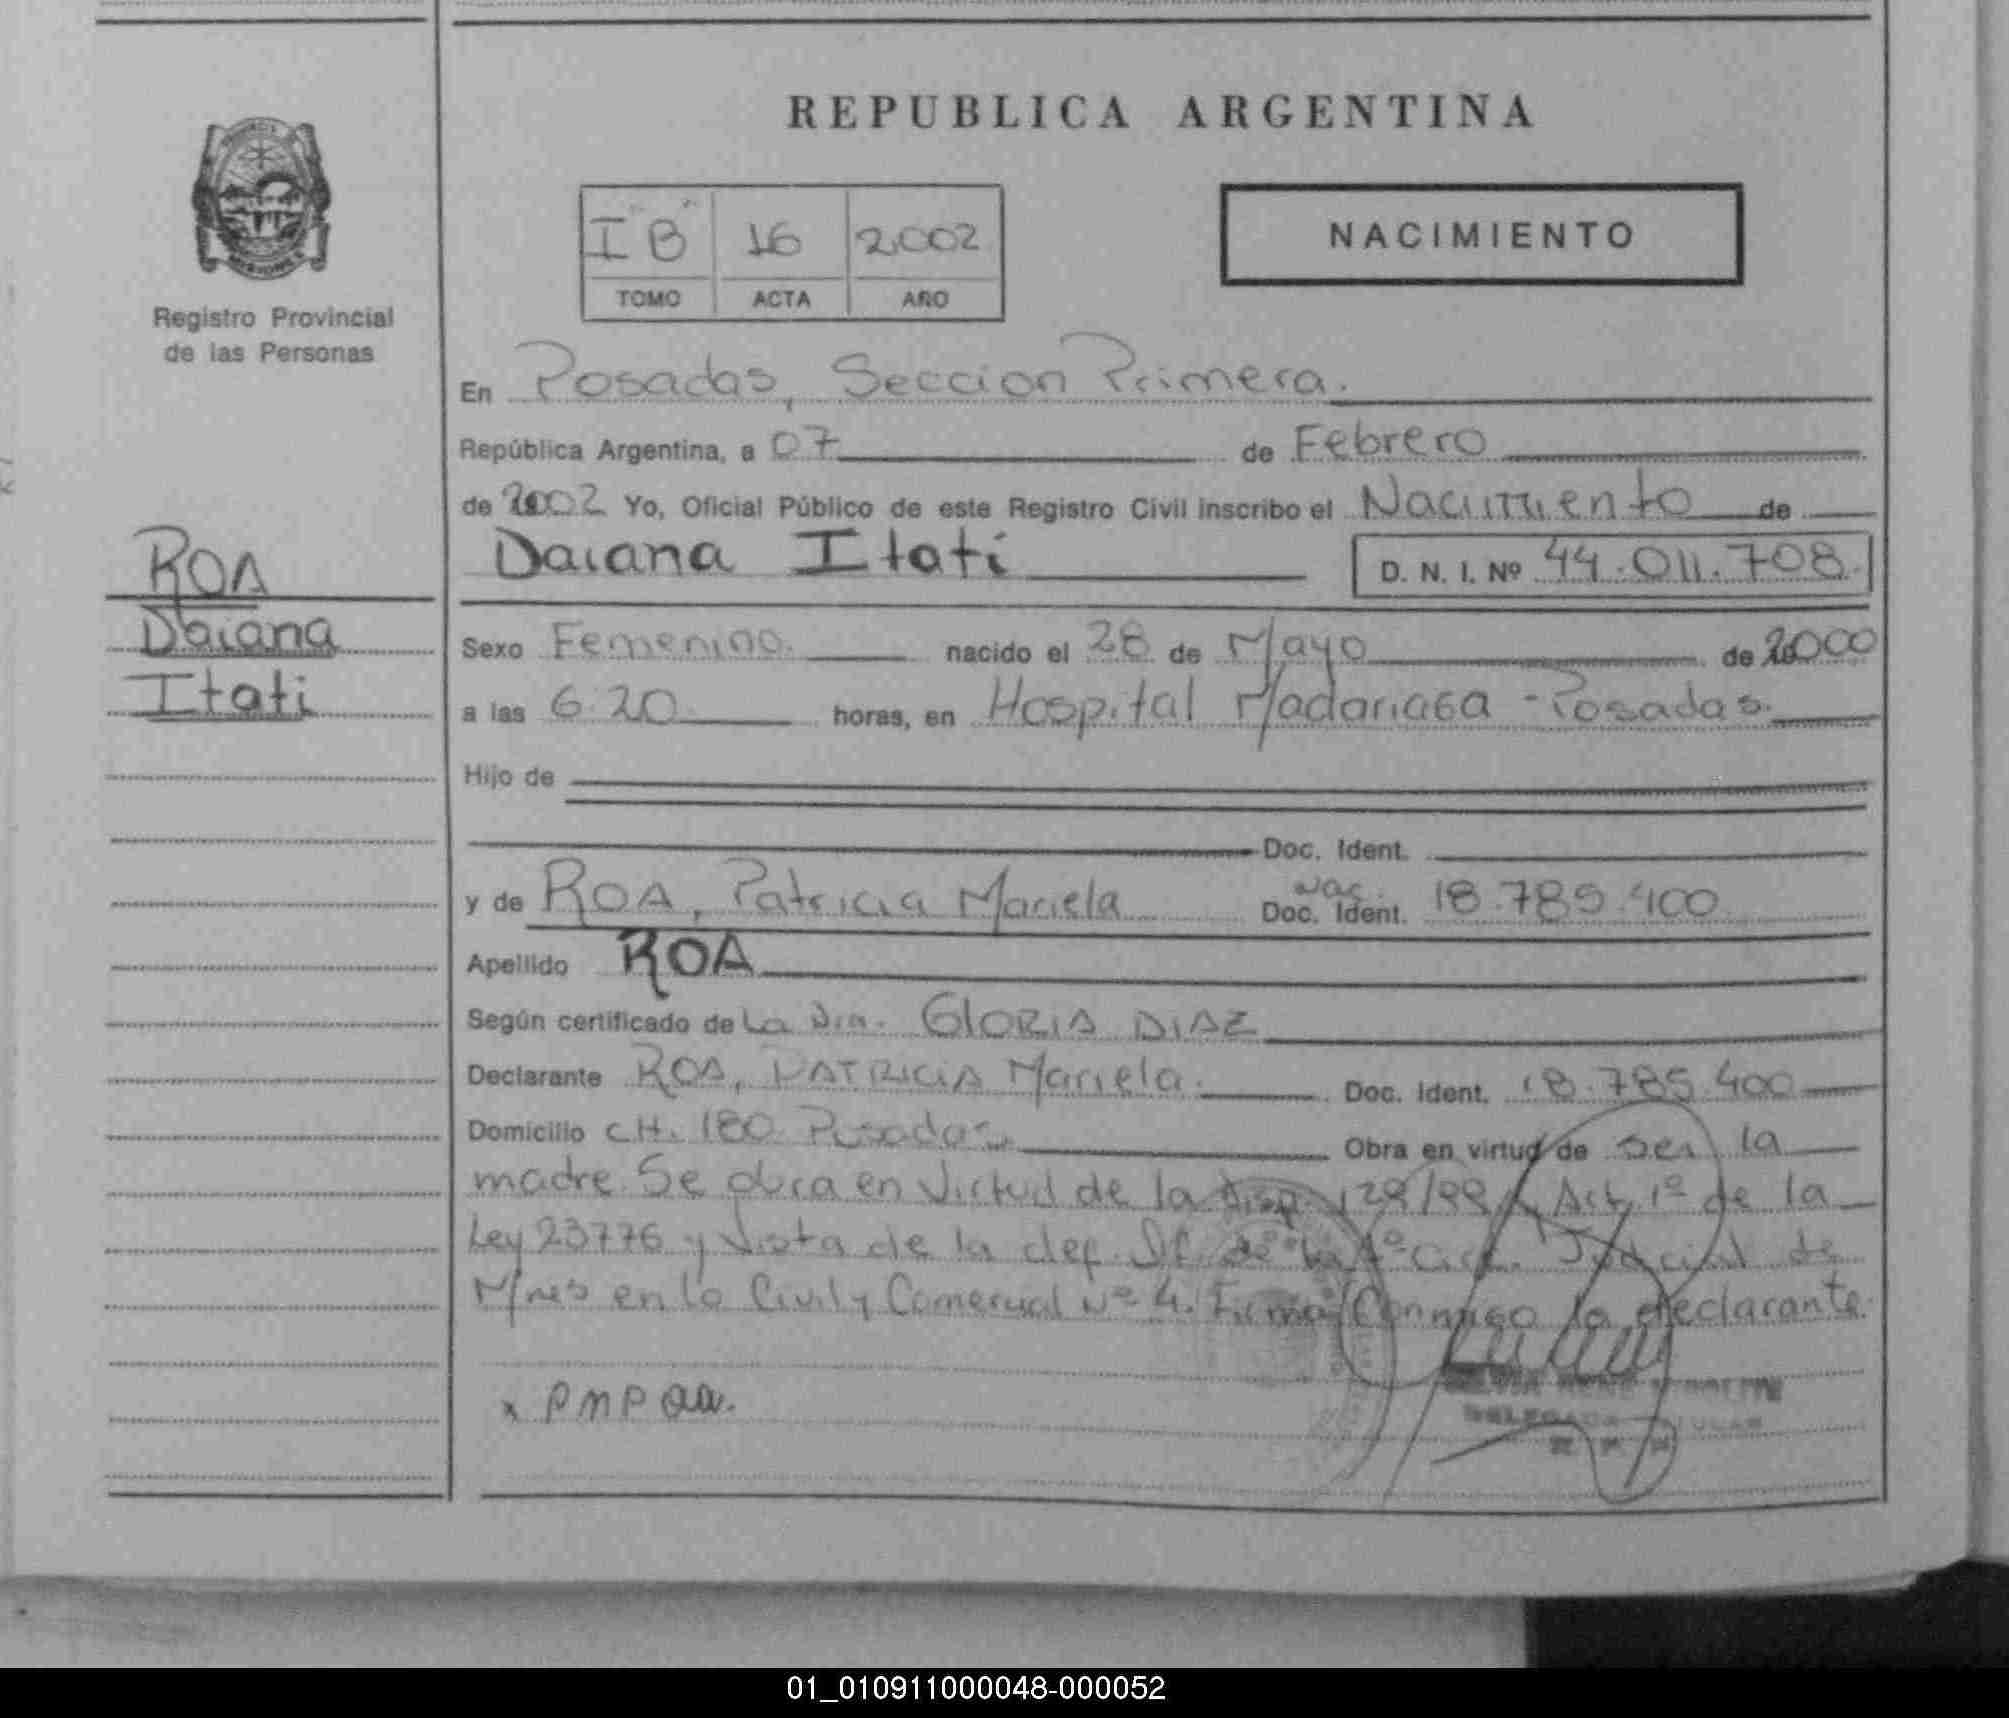 REPUBLICA ARGENTINA
I "B" 16 2.002
TOMO ACTA AÑO
NACIMIENTO
Registro Provincial
de las Personas
En Posadas, Seccion Primera.
República Argentina, a 07 de Febrero
de 2002 Yo, Oficial Público de este Registro Civil inscribo el Nacimiento de
Daiana Itati D. N. I. Nº 44.011.708.
ROA
Daiana
Itati
Sexo Femenino. nacido el 28 de Mayo de 2000
a las 6.20 horas, en Hospital Madariaga - Posadas.
Hijo de
Doc. Ident.
y de ROA, Patricia Mariela Nac. Doc. Ident. 18.785.400
Apellido ROA
Según certificado de La Dra. GLORIA DIAZ
Declarante ROA, PATRICIA Mariela. Doc. Ident. 18.785.400
Domicilio CH. 180 Posadas Obra en virtud de ser la
madre. Se obra en virtud de la Disp. 129/99 Art. 1º de la
Ley 23776 y Vista de la def. Of. de la 1º Circ. Judicial de
Mnes en lo Civil y Comercial Nº 4. Firma Conmigo la declarante.
x PMPaa.
DELEGADA TITULAR
01_010911000048-000052